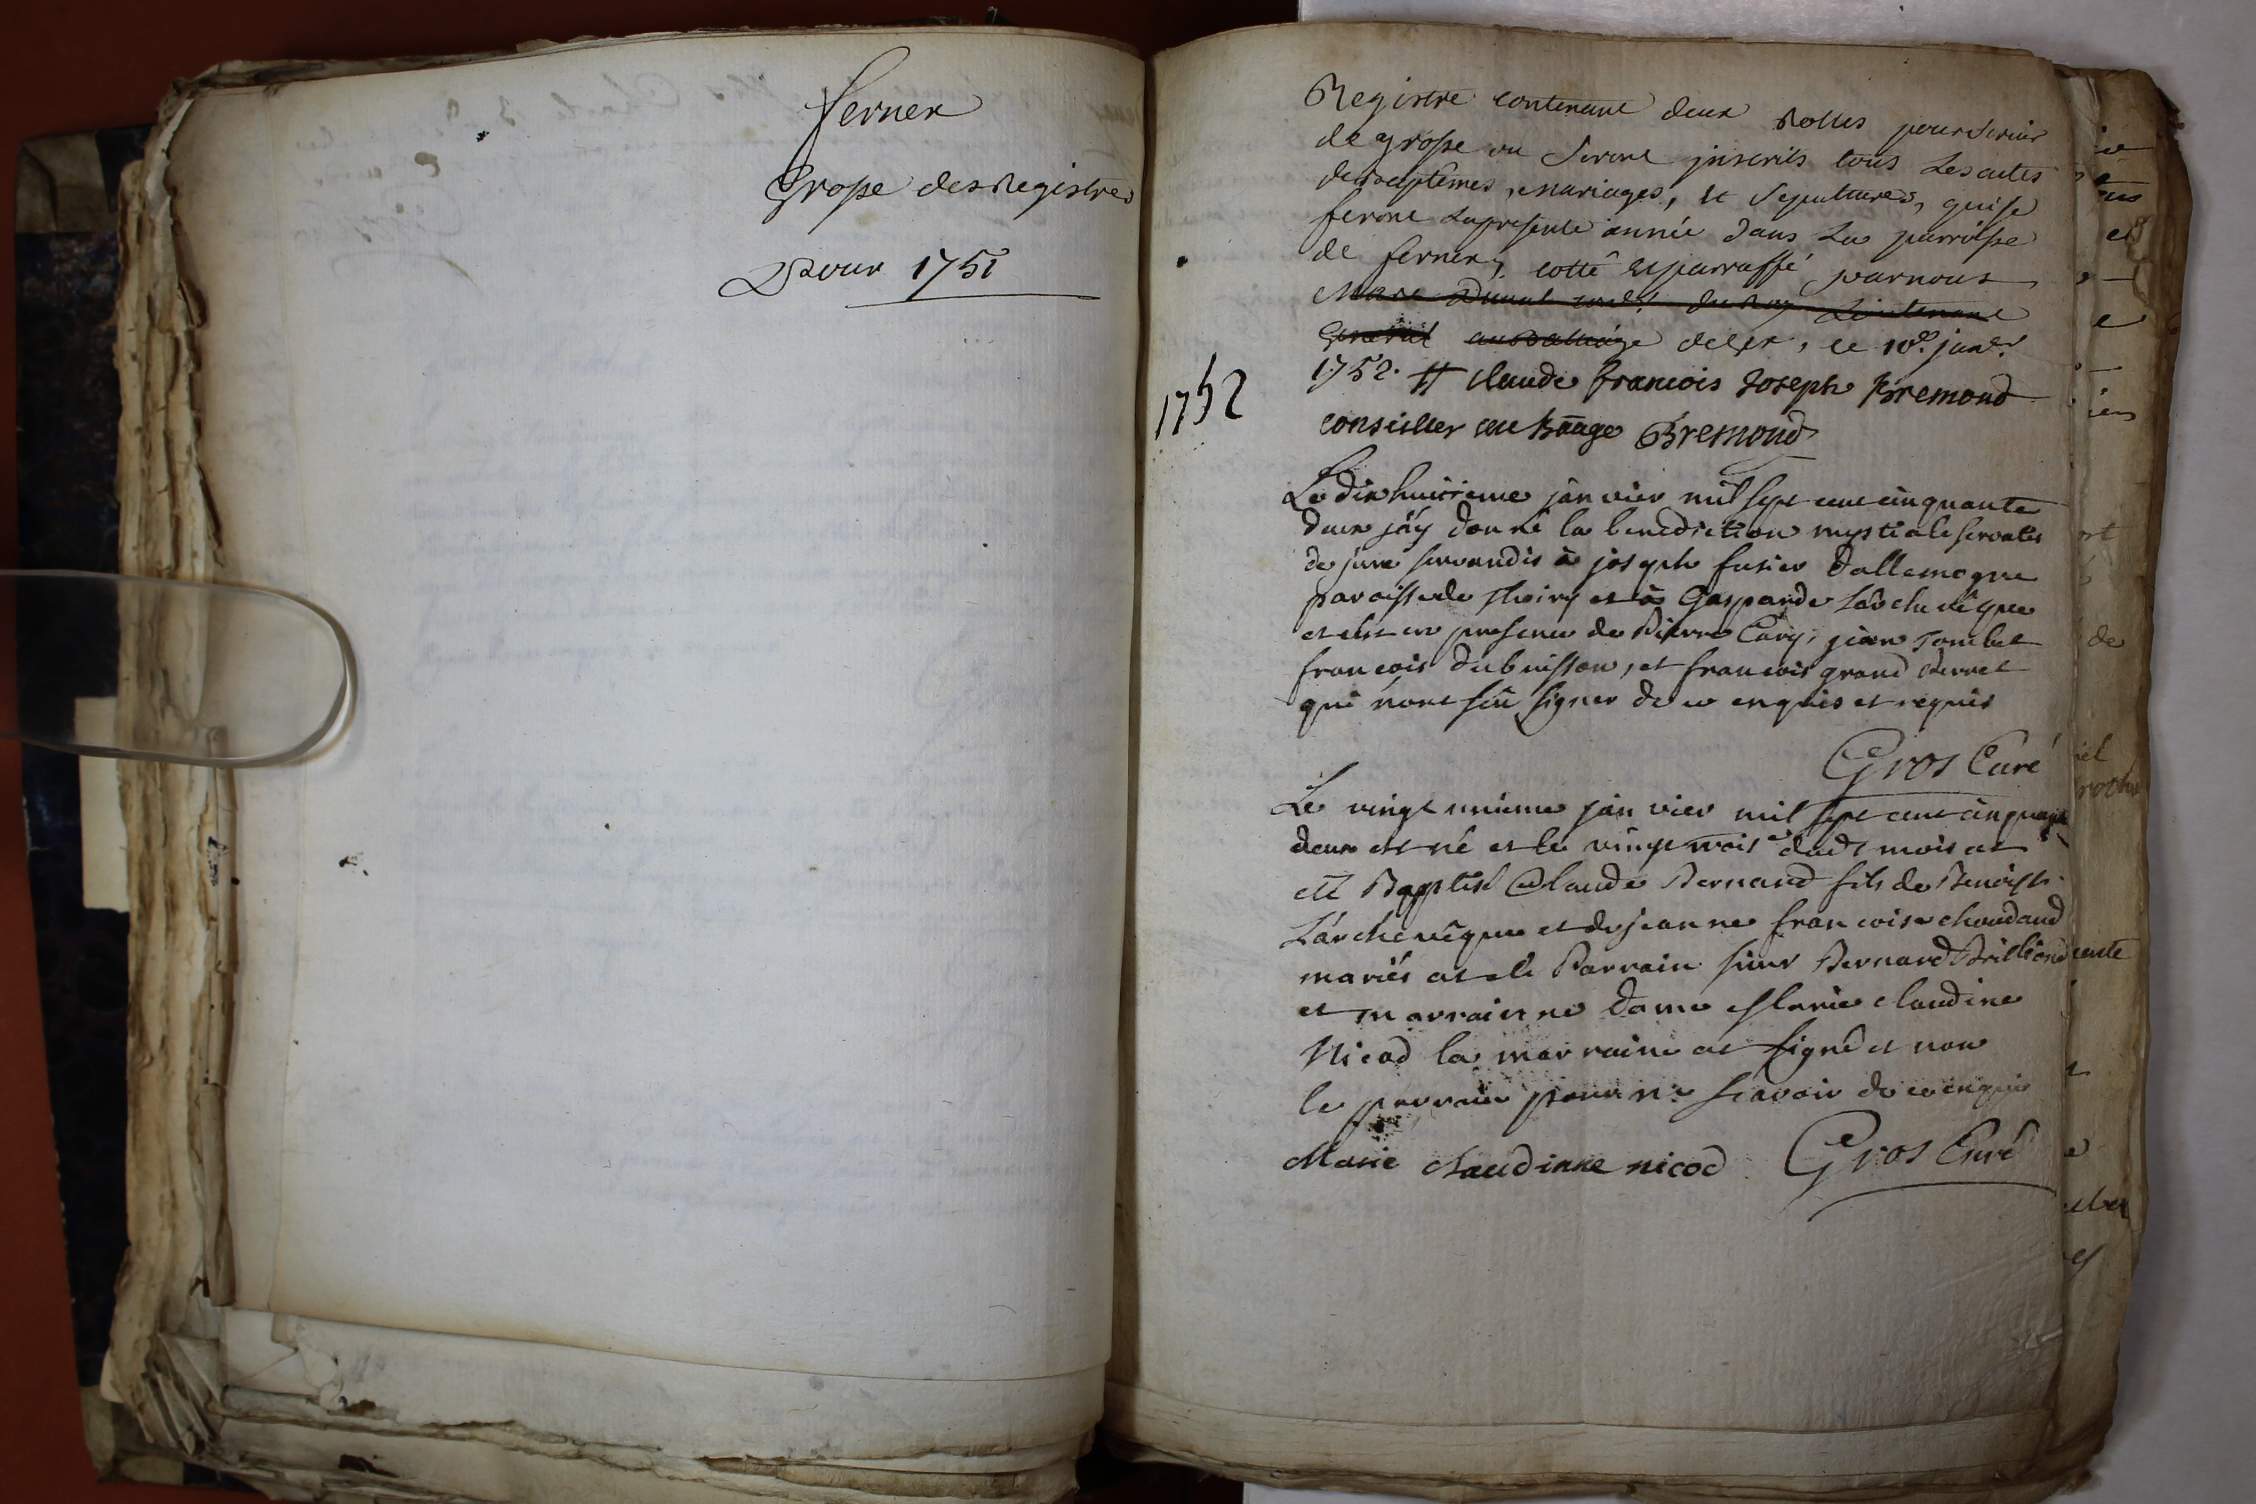 fernex
Grosse des Registres
Pour 1751
1752
Registre contenant deux Rolles pour servir
de grosse ou seront jnscrits tous Les actes
de baptêmes, mariages, et sepultures, qui se
feront La presente année dans La parroisse
de fernex, cotté et parraffé par nous
Marc Duval Cons.r du Roy Lieutenant
General au Balliage de Gex, ce 10.e janv.r
1752. # claude francois Joseph Bremond
conseiller au Baage Bremond
Le dix huitieme jànvier mil sept cent cinquante
deux j'ày donné la benediction nuptiale servatis
de jure servandis à joseph fusier d'allemogne
paroisse de Thoiry et à Gasparde L'archevêque
et ce en presence de Pierre Cary, jean
francois dubuisson, et francois grand Perret
qui n'ont sçu signer de ce enquis et requis
Gros Curé
Le vingt unieme jànvier mil sept cent cinquante
deux est né et le vingt trois.e dudt mois at
été Baptisé Claude Bernard fils de Benoist
L'archevêque et de jeanne francoise choudaud
mariés at eté Parrain sieur Bernard Brilliond
et marrainne dame Marie claudine
Nicod la marraine at signé et non
le parrain pour ne scavoir de ce enquis
Marie claudinne nicod Gros Curé